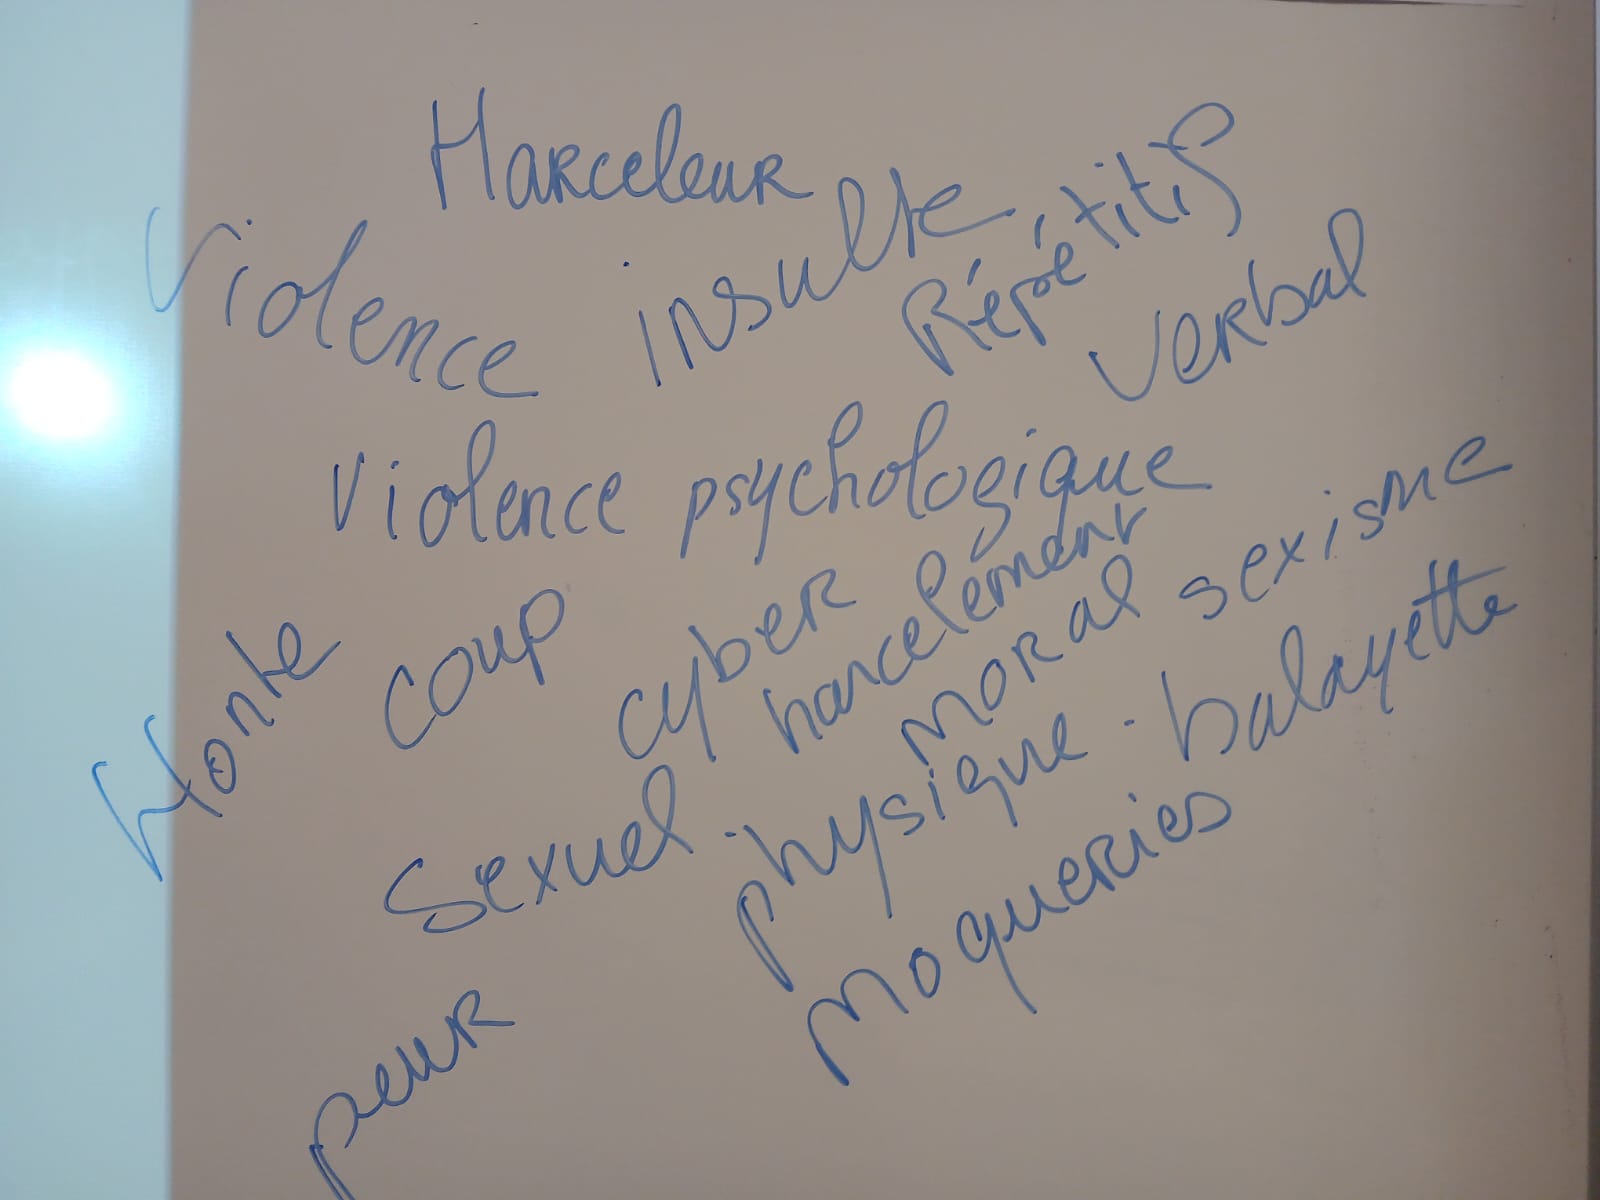 Harceleur
Violence insulte Répétitif
Verbal
Violence psychologique
Honte coup cyber
harcelément
moral sexisme
Sexuel. physique. balayette
moqueries
peur